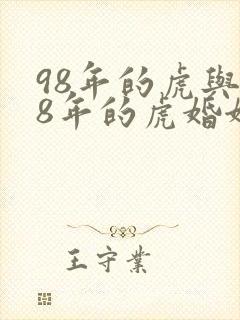 98年的虎與
8年的虎婚
王守業